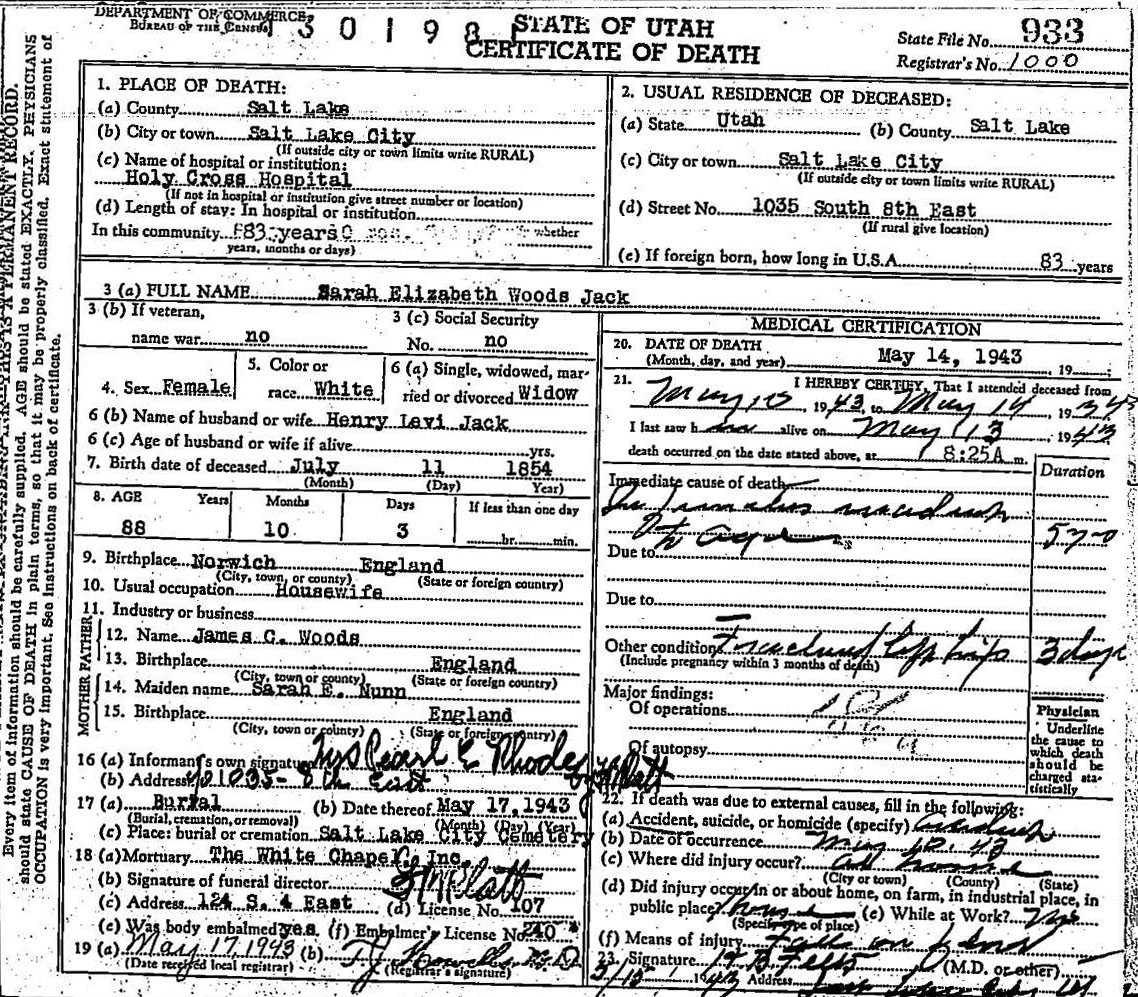 DEPARTMENT OF COMMERCE
BUREAU OF THE CENSUS
STATE OF UTAH
CERTIFICATE OF DEATH
State File No. 933
Registrar's No. 1000
1. PLACE OF DEATH:
(a) County Salt Lake
(b) City or town Salt Lake City
(If outside city or town limits write RURAL)
(c) Name of hospital or institution:
Holy Cross Hospital
(If not in hospital or institution give street number or location)
(d) Length of stay: In hospital or institution
In this community 83 years whether
years, months or days)
2. USUAL RESIDENCE OF DECEASED:
(a) State Utah (b) County Salt Lake
(c) City or town Salt Lake City
(If outside city or town limits write RURAL)
(d) Street No. 1035 South 8th East
(If rural give location)
(e) If foreign born, how long in U.S.A. 83 years
3 (a) FULL NAME Sarah Elizabeth Woods Jack
3 (b) If veteran,
name war no
3 (c) Social Security
No. no
4. Sex Female
5. Color or
race White
6 (a) Single, widowed, mar-
ried or divorced Widow
6 (b) Name of husband or wife Henry Levi Jack
6 (c) Age of husband or wife if alive yrs.
7. Birth date of deceased July 11 1854
(Month) (Day) Year)
8. AGE Years Months Days If less than one day
88 10 3 hr. min.
9. Birthplace Norwich England
(City, town, or county) (State or foreign country)
10. Usual occupation Housewife
11. Industry or business
FATHER
12. Name James C. Woods
13. Birthplace England
(City, town or county) (State or foreign country)
MOTHER
14. Maiden name Sarah E. Nunn
15. Birthplace England
(City, town or county) (State or foreign country)
16 (a) Informant's own signature Mrs Pearl E Rhodes
(b) Address 1035- 8th East
17 (a) Burial (b) Date thereof May 17, 1943
(Burial, cremation, or removal) (Month) (Day) (Year)
(c) Place: burial or cremation Salt Lake City Cemetery
18 (a) Mortuary The White Chapel Inc.
(b) Signature of funeral director
(c) Address 124 S. 4 East (d) License No. 107
(e) Was body embalmed yes (f) Embalmer's License No. 240
19 (a) May 17, 1943 (b)
(Date received local registrar) (Registrar's signature)
MEDICAL CERTIFICATION
20. DATE OF DEATH
(Month, day, and year) May 14, 1943 19
21. I HEREBY CERTIFY, That I attended deceased from
May 1943, to May 14 19
I last saw h alive on May 13 1943
death occurred on the date stated above, at 8:25A m.
Immediate cause of death
Duration
Due to
Due to
Other condition Fractured left hip 3 days
(Include pregnancy within 3 months of death)
Major findings:
Of operations
Of autopsy
Physician
Underline
the cause to
which death
should be
charged sta-
tistically
22. If death was due to external causes, fill in the following:
(a) Accident, suicide, or homicide (specify) Accident
(b) Date of occurrence May 43
(c) Where did injury occur? At home
(City or town) (County) (State)
(d) Did injury occur in or about home, on farm, in industrial place, in
public place? home (e) While at Work? no
(Specify type of place)
(f) Means of injury Fall on
23. Signature (M.D. or other)
Address
Every item of information should be carefully supplied. AGE should be stated EXACTLY. PHYSICIANS
should state CAUSE OF DEATH in plain terms, so that it may be properly classified. Exact statement of
OCCUPATION is very important. See instructions on back of certificate.